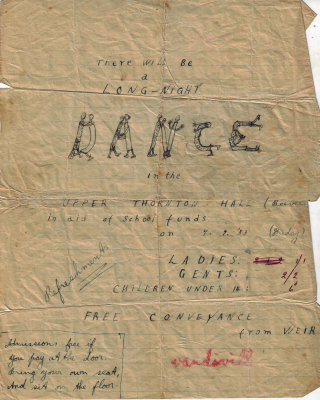 There will be
a
LONG-NIGHT
DANCE
in the
UPPER THORNTON HALL
in aid of school funds
on 7.9.51 (Friday)
LADIES: 1/1
GENTS: 2/2
CHILDREN UNDER 16: 6
Refreshments
FREE CONVEYANCE
from WEIR
Admission free if
you pay at the door.
Bring your own seat,
And sit on the floor